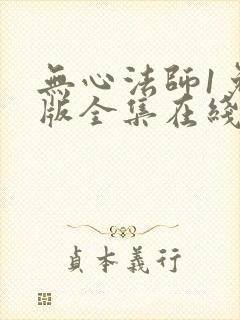 無心法師1免
版全集在綫
貞本義行